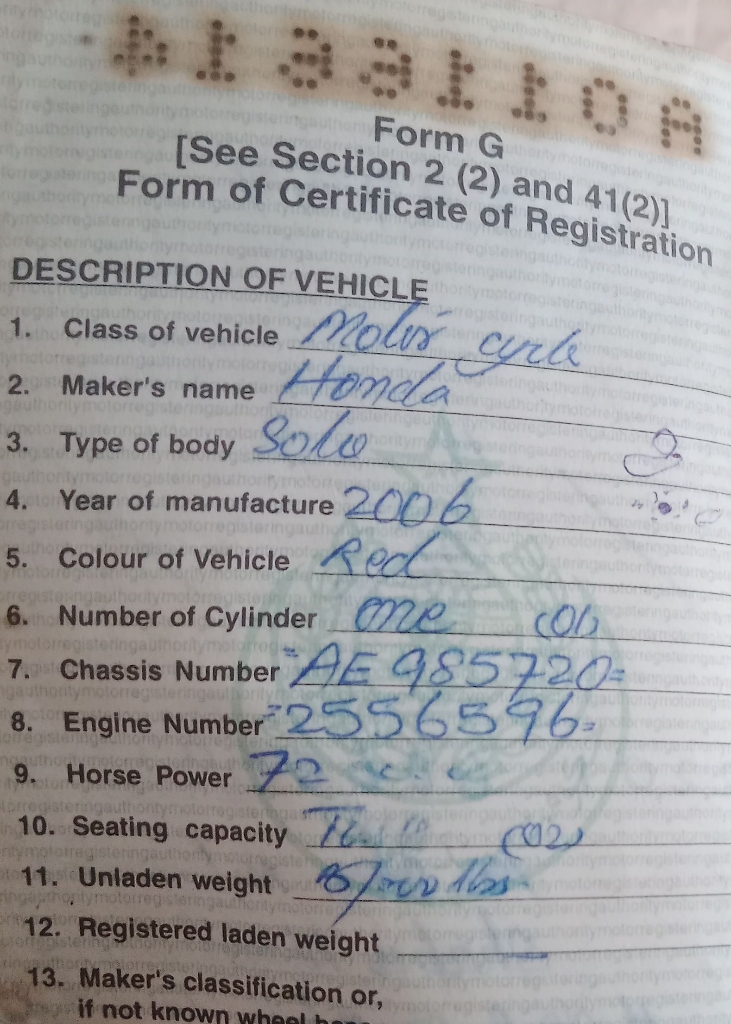 Form G
[See Section 2 (2) and 41(2)]
Form of Certificate of Registration
DESCRIPTION OF VEHICLE
1. Class of vehicle Motor cycle
2. Maker's name Honda
3. Type of body Solo
4. Year of manufacture 2006
5. Colour of Vehicle Red
6. Number of Cylinder one (01)
7. Chassis Number =AE 985720=
8. Engine Number =2556596=
9. Horse Power 72 c.c
10. Seating capacity (02)
11. Unladen weight lbs
12. Registered laden weight
13. Maker's classification or,
if not known wheel